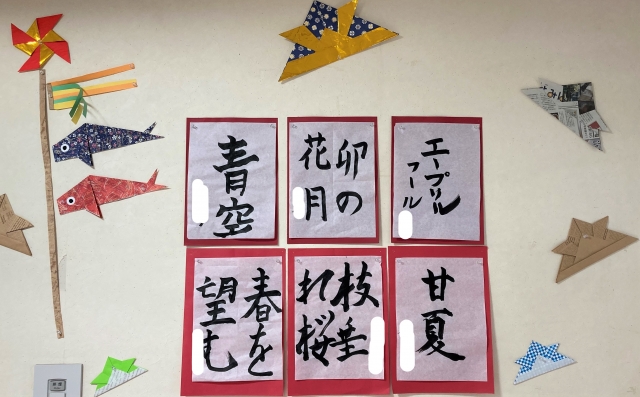 エープリル
フール
卯の
花月
青空
甘夏
枝垂
れ桜
春を
望む